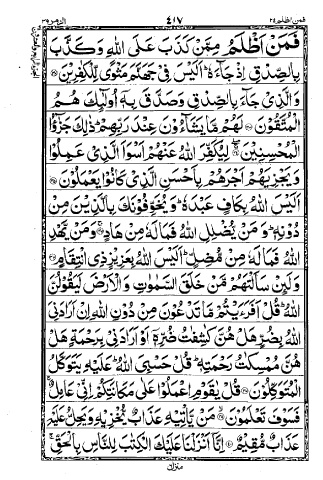 فمن اظلم ٢٤ ٤١٧ الزمر ٣٩
فَمَنْ اَظْلَمُ مِمَّنْ كَذَبَ عَلَى اللّٰهِ وَكَذَّبَ
بِالصِّدْقِ اِذْ جَآءَهٗ ؕ اَلَيْسَ فِيْ جَهَنَّمَ مَثْوًى لِّلْكٰفِرِيْنَ ۝
وَالَّذِيْ جَآءَ بِالصِّدْقِ وَصَدَّقَ بِهٖۤ اُولٰٓئِكَ هُمُ
الْمُتَّقُوْنَ ۝ لَهُمْ مَّا يَشَآءُوْنَ عِنْدَ رَبِّهِمْ ؕ ذٰلِكَ جَزٰٓؤُا
الْمُحْسِنِيْنَ ۝ لِيُكَفِّرَ اللّٰهُ عَنْهُمْ اَسْوَاَ الَّذِيْ عَمِلُوْا
وَيَجْزِيَهُمْ اَجْرَهُمْ بِاَحْسَنِ الَّذِيْ كَانُوْا يَعْمَلُوْنَ ۝
اَلَيْسَ اللّٰهُ بِكَافٍ عَبْدَهٗ ؕ وَيُخَوِّفُوْنَكَ بِالَّذِيْنَ مِنْ
دُوْنِهٖ ؕ وَمَنْ يُّضْلِلِ اللّٰهُ فَمَا لَهٗ مِنْ هَادٍ ۝ وَمَنْ يَّهْدِ
اللّٰهُ فَمَا لَهٗ مِنْ مُّضِلٍّ ؕ اَلَيْسَ اللّٰهُ بِعَزِيْزٍ ذِي انْتِقَامٍ ۝
وَلَئِنْ سَاَلْتَهُمْ مَّنْ خَلَقَ السَّمٰوٰتِ وَالْاَرْضَ لَيَقُوْلُنَّ
اللّٰهُ ؕ قُلْ اَفَرَءَيْتُمْ مَّا تَدْعُوْنَ مِنْ دُوْنِ اللّٰهِ اِنْ اَرَادَنِيَ
اللّٰهُ بِضُرٍّ هَلْ هُنَّ كٰشِفٰتُ ضُرِّهٖۤ اَوْ اَرَادَنِيْ بِرَحْمَةٍ هَلْ
هُنَّ مُمْسِكٰتُ رَحْمَتِهٖ ؕ قُلْ حَسْبِيَ اللّٰهُ ؕ عَلَيْهِ يَتَوَكَّلُ
الْمُتَوَكِّلُوْنَ ۝ قُلْ يٰقَوْمِ اعْمَلُوْا عَلٰى مَكَانَتِكُمْ اِنِّيْ عَامِلٌ ۚ
فَسَوْفَ تَعْلَمُوْنَ ۝ مَنْ يَّاْتِيْهِ عَذَابٌ يُّخْزِيْهِ وَيَحِلُّ عَلَيْهِ
عَذَابٌ مُّقِيْمٌ ۝ اِنَّاۤ اَنْزَلْنَا عَلَيْكَ الْكِتٰبَ لِلنَّاسِ بِالْحَقِّ ۚ
منزل ٦